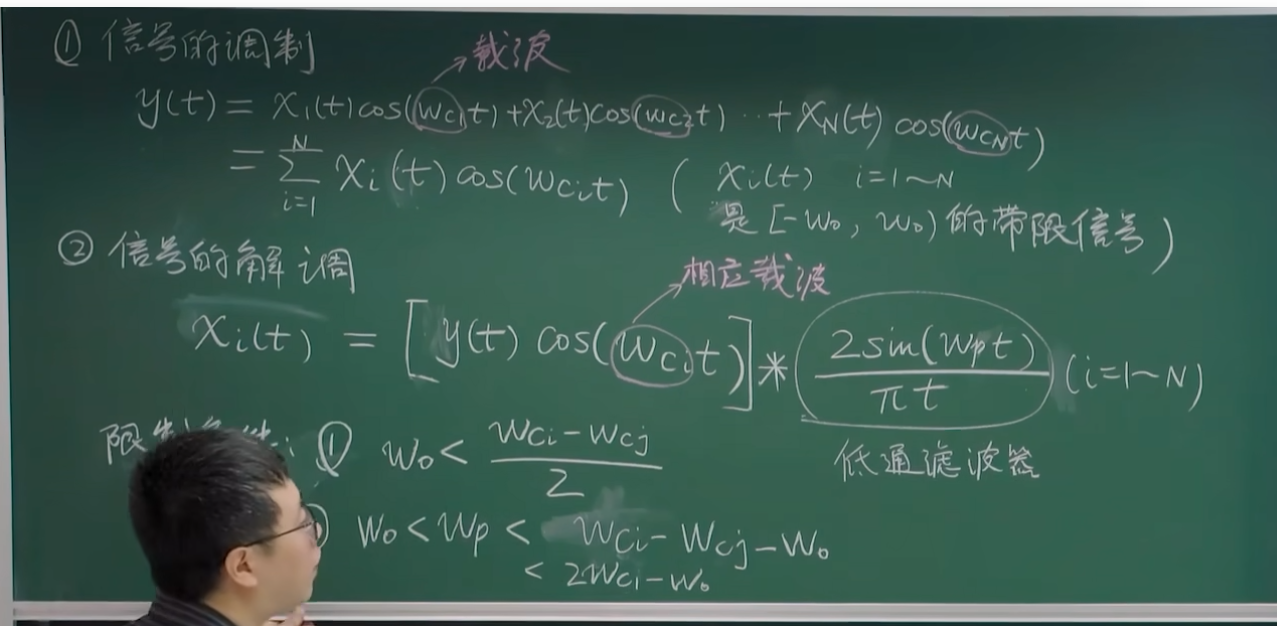 ① 信号的调制
载波
y(t) = x₁(t)cos(ωc₁t)+x₂(t)cos(ωc₂t) ‥ +x_N(t) cos(ωc_N t)
= Σ_{i=1}^{N} x_i(t)cos(ωc_i t) ( x_i(t) i=1~N
是[-ω₀, ω₀)的带限信号)
② 信号的解调
相应载波
x_i(t) = [y(t) cos(ωc_i t)] * 2sin(ω_p t)/πt (i=1~N)
低通滤波器
限 : ① ω₀ < (ωc_i - ωc_j)/2
ω₀ < ω_p < ωc_i - ωc_j - ω₀
< 2ωc_i - ω₀